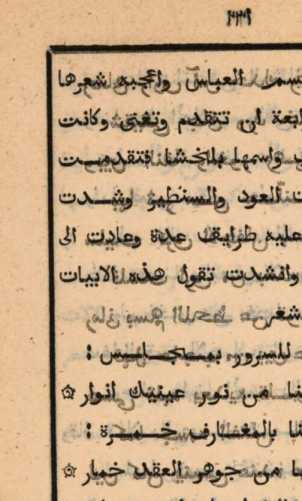 ٢٣٩
تسمى العباس واعجبه شعرها
رابعة ان تتقدم وتغنى وكانت
واسمها بلاخشنا فتقدمت
العود والسنطير وشدت
عليه طرايق عدة وعادت الى
وانشدت تقول هذه الابيات
شعر
للسرور بمجالس :
من نور عينيك انوار ☆
بالمعارف خمرة :
من جوهر العقد خيار ☆